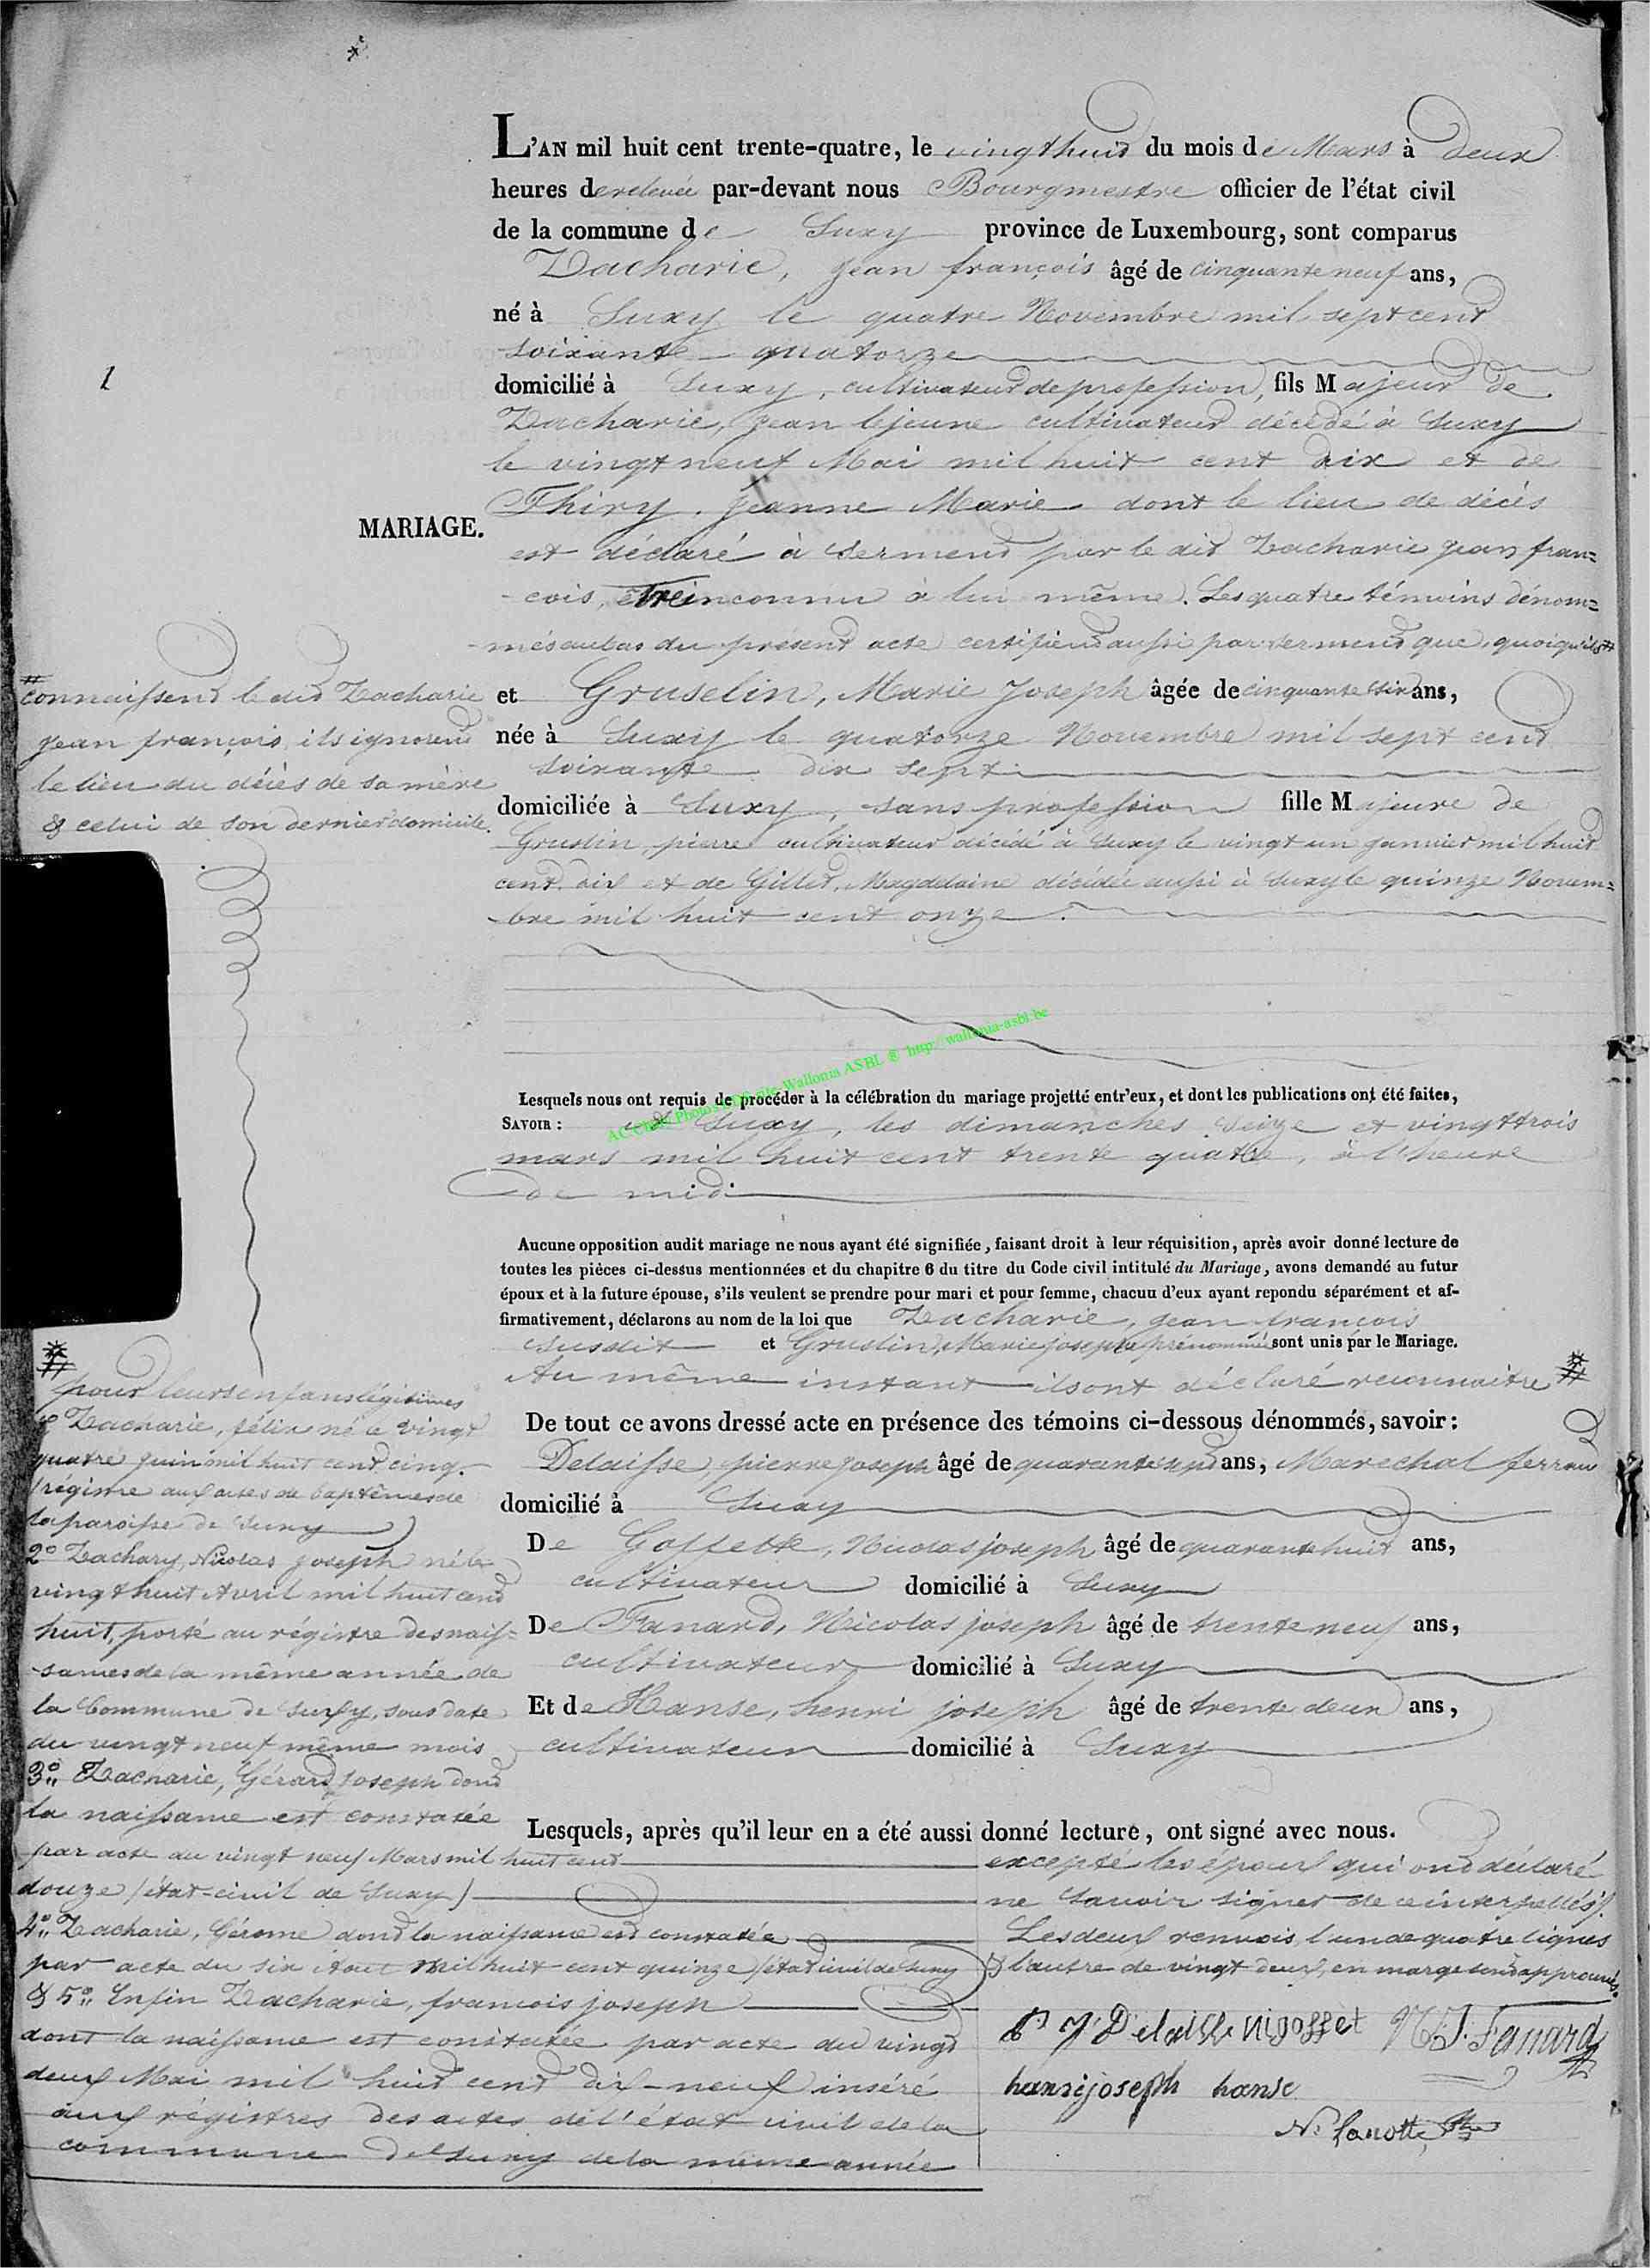 1
MARIAGE.
L'AN mil huit cent trente-quatre, le vingthuit du mois de Mars à deux
heures de relevée par-devant nous Bourgmestre officier de l'état civil
de la commune de Suxy province de Luxembourg, sont comparus
Zacharie, jean françois âgé de cinquante neuf ans,
né à Suxy le quatre Novembre mil sept cent
soixante quatorze
domicilié à Suxy, cultivateur de profession, fils Majeur de
Zacharie, jean lejeune cultivateur décédé à Suxy
le vingt neuf Mai mil huit cent dix et de
Thiry, jeanne Marie dont le lieu de décès
est déclaré à serment par le dit Zacharie jean fran=
cois, être inconnu à lui même. Les quatre témoins dénom=
més au bas du présent acte certifient aussi par serment que, quoiqu'ils #
# connaissent le dit Zacharie
jean françois, ils ignorent
le lieu du décès de sa mère
& celui de son dernier domicile.
et Gruselin, Marie Joseph âgée de cinquante six ans,
née à Suxy le quatorze Novembre mil sept cent
soixante dix sept
domiciliée à Suxy, sans profession fille Majeure de
Gruslin, pierre cultivateur décédé à Suxy le vingt un janvier mil huit
cent dix et de Gillet, Magdelaine décédée aussi à Suxy le quinze Novem=
bre mil huit cent onze.
AC Photos site Wallonia ASBL ® http://wallonia-asbl.be
Lesquels nous ont requis de procéder à la célébration du mariage projetté entr'eux, et dont les publications ont été faites,
SAVOIR : à Suxy, les dimanches seize et vingt trois
mars mil huit cent trente quatre, à l'heure
de midi
Aucune opposition audit mariage ne nous ayant été signifiée, faisant droit à leur réquisition, après avoir donné lecture de
toutes les pièces ci-dessus mentionnées et du chapitre 6 du titre du Code civil intitulé du Mariage, avons demandé au futur
époux et à la future épouse, s'ils veulent se prendre pour mari et pour femme, chacuu d'eux ayant repondu séparément et af-
firmativement, déclarons au nom de la loi que Zacharie, jean françois
susdit et Gruslin, Marie joseph prénommée sont unis par le Mariage.
Au même instant ils ont déclaré reconnaitre #
# pour leurs enfans légitimes
1º Zacharie, félix né le vingt
quatre juin mil huit cent cinq.
(régistre aux actes de baptêmes de
la paroisse de Suxy)
2º Zachary, Nicolas joseph né le
vingt huit Avril mil huit cent
huit, porté au régistre des nais=
sances de la même année de
la Commune de Suxy, sous date
du vingt neuf même mois
3º Zacharie, Gérard Joseph dont
la naissance est constatée
par acte du vingt neuf Mars mil huit cent
douze (état-civil de Suxy)
4º Zacharie, Gérome dont la naissance est constatée
par acte du six Aout mil huit cent quinze (état civil de Suxy
& 5º Enfin Zacharie, francois joseph
dont la naissance est constatée par acte du vingt
deux Mai mil huit cent dix-neuf inséré
aux régistres des actes de l'état civil de la
commune de Suxy de la même année
De tout ce avons dressé acte en présence des témoins ci-dessous dénommés, savoir :
Delaisse, pierre joseph âgé de quarante sept ans, Marechal ferrant
domicilié à Suxy
De Goffette, Nicolas joseph âgé de quarante huit ans,
cultivateur domicilié à Suxy
De Fanard, Nicolas joseph âgé de trente neuf ans,
cultivateur domicilié à Suxy
Et de Hanse, henri joseph âgé de trente deux ans,
cultivateur domicilié à Suxy
Lesquels, après qu'il leur en a été aussi donné lecture, ont signé avec nous.
excepté les époux qui ont déclaré
ne savoir signer de ce interpellés.
Les deux renvois, l'un de quatre lignes
& l'autre de vingt deux, en marge sont approuvés.
P J Delaisse nigoffet N J. Fanard
henri joseph hanse